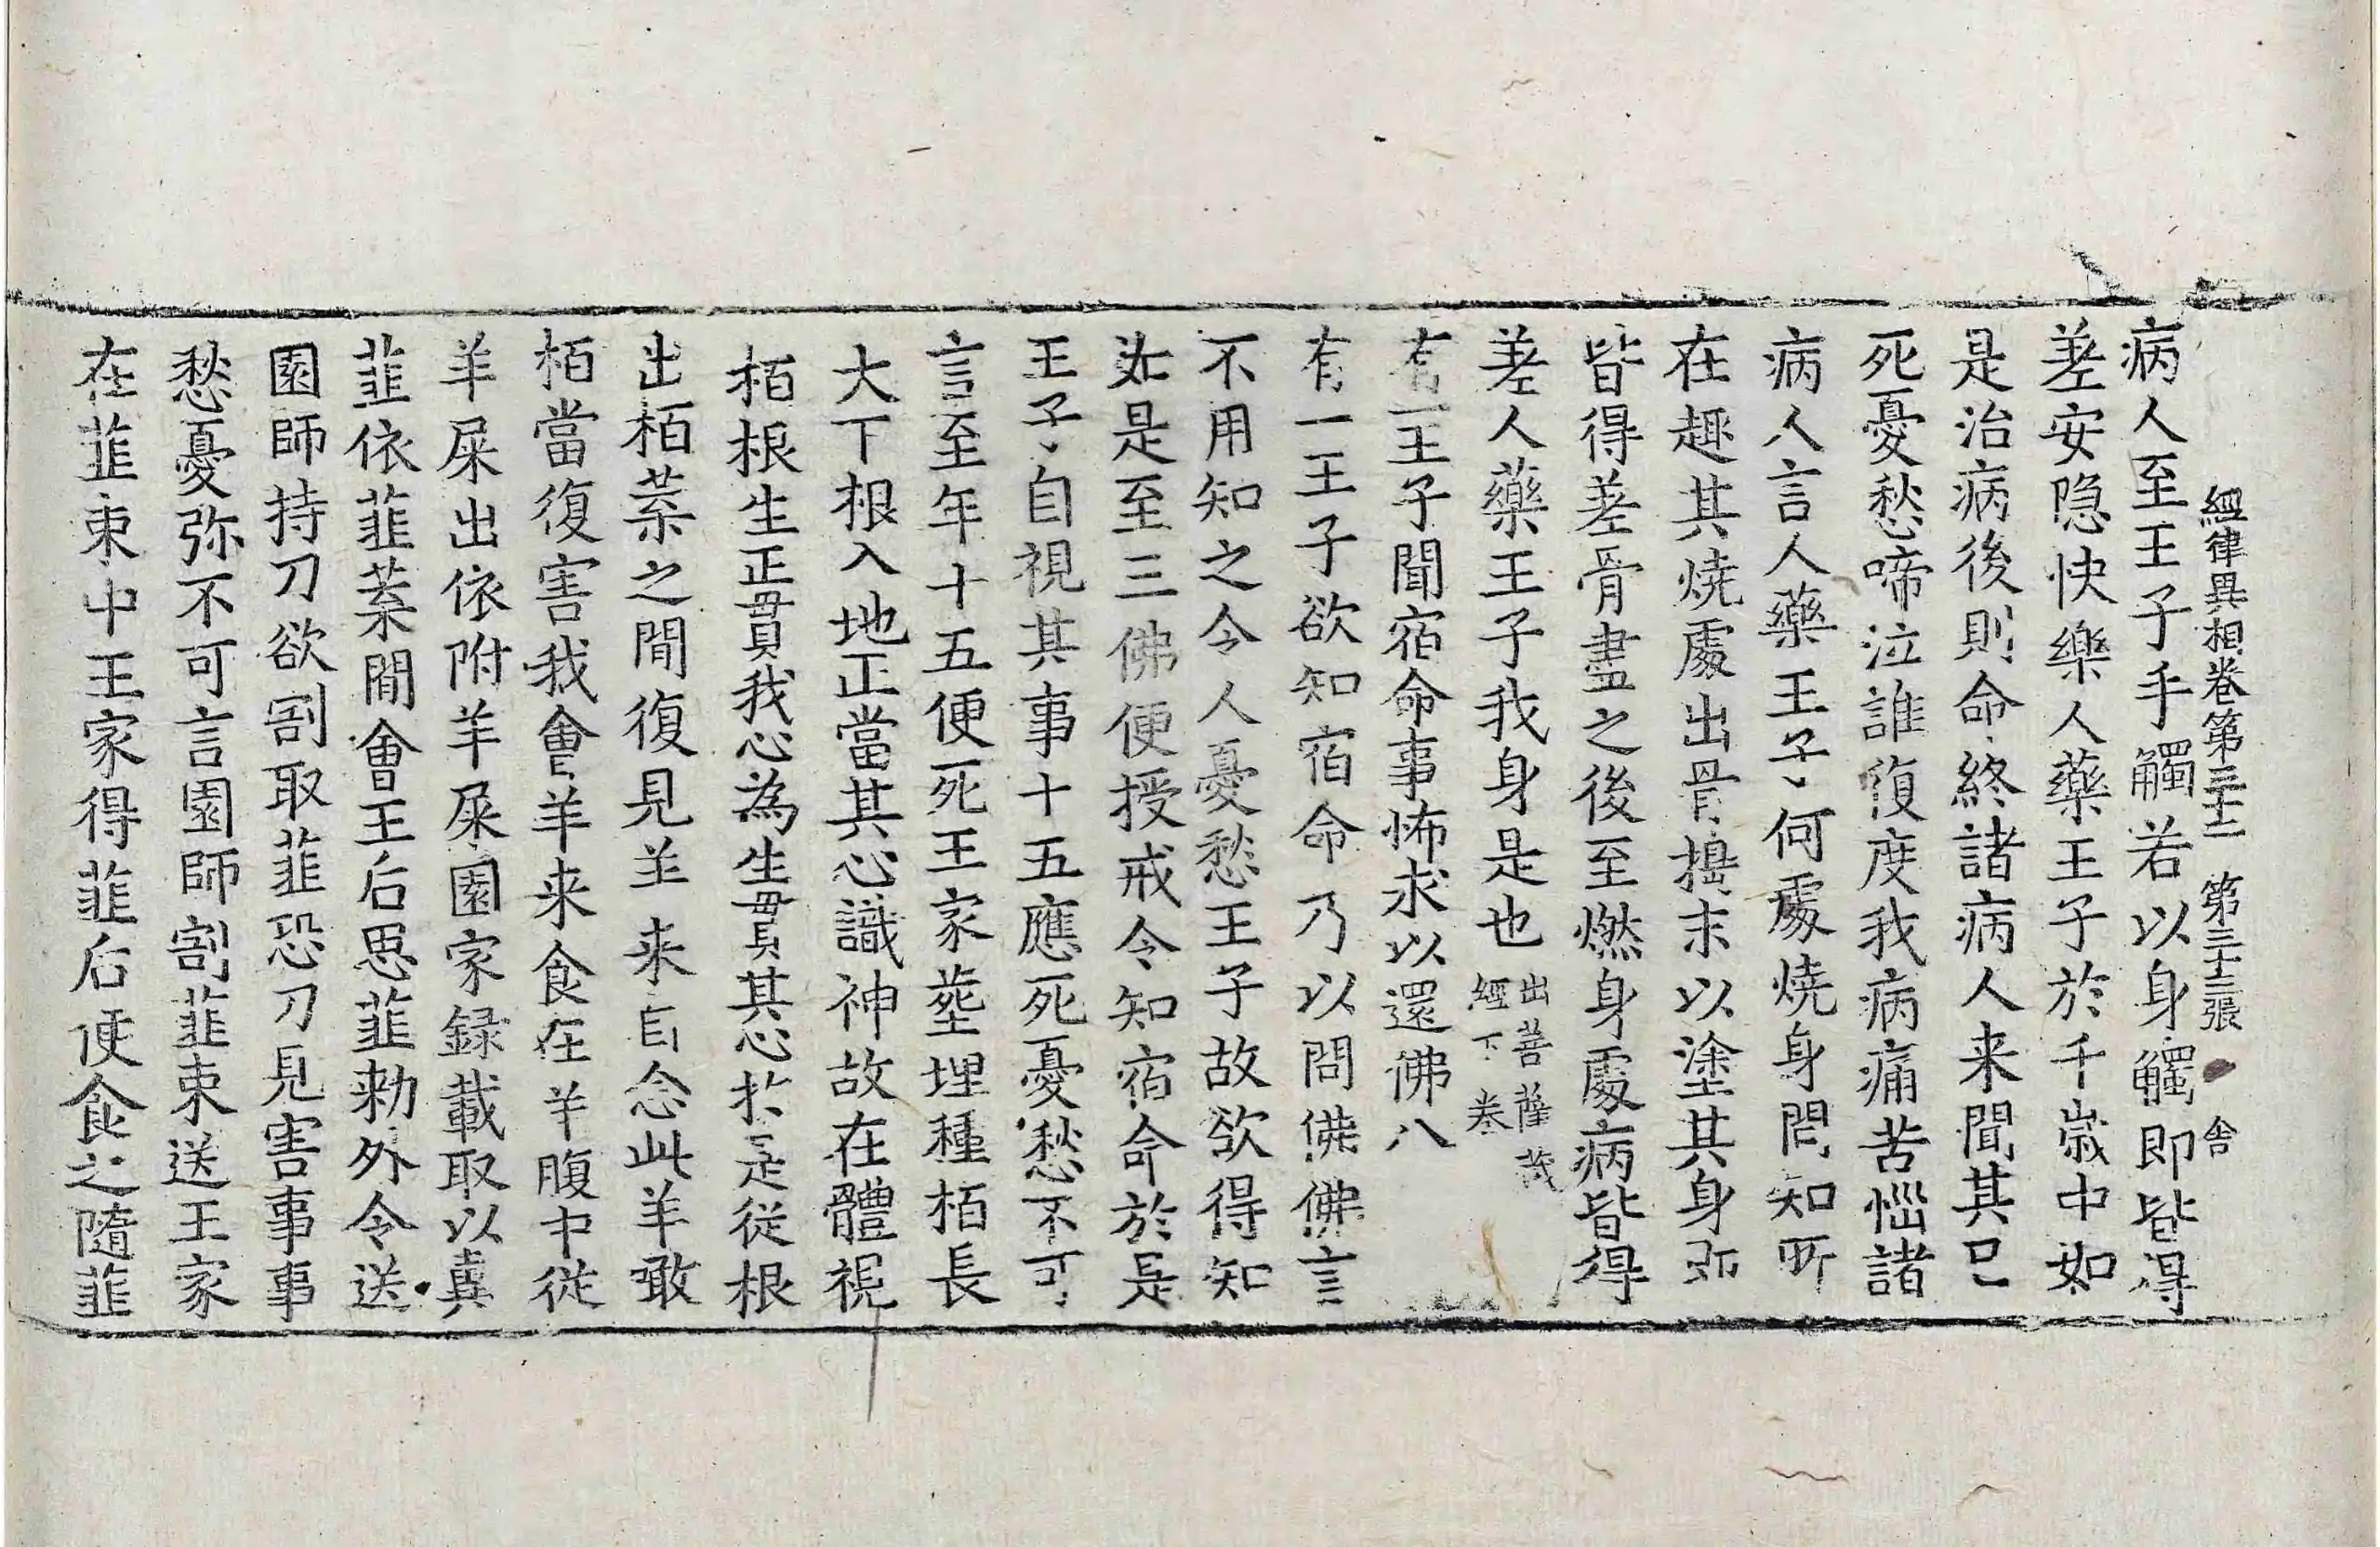 經律異相卷第三十二 第三十三張 舍
病人至王子手觸若以身觸即皆得
差安隐快樂人藥王子於千歲中如
是治病後則命終諸病人来聞其已
死憂愁啼泣誰復度我病痛苦惱諸
病人言人藥王子何處燒身問知所
在趣其燒處出骨擣末以塗其身即
皆得差骨盡之後至燃身處病皆得
差人藥王子我身是也出菩薩藏經下卷
有一王子聞宿命事怖求以還佛八
有一王子欲知宿命乃以問佛佛言
不用知之令人憂愁王子故欲得知
如是至三佛便授戒令知宿命於是
王子自視其事十五應死憂愁不可
言至年十五便死王家塟埋種栢長
大下根入地正當其心識神故在體視
栢根生正貫我心為生貫其心於是從根
出栢葉之間復見羊来自念此羊噉
栢當復害我會羊来食在羊腹中從
羊屎出依附羊屎園家録載取以糞
韮依韮葉間會王后思韮勑外令送
園師持刀欲割取韮恐刀見害事事
愁憂弥不可言園師割韮束送王家
在韮束中王家得韮后便食之隨韮